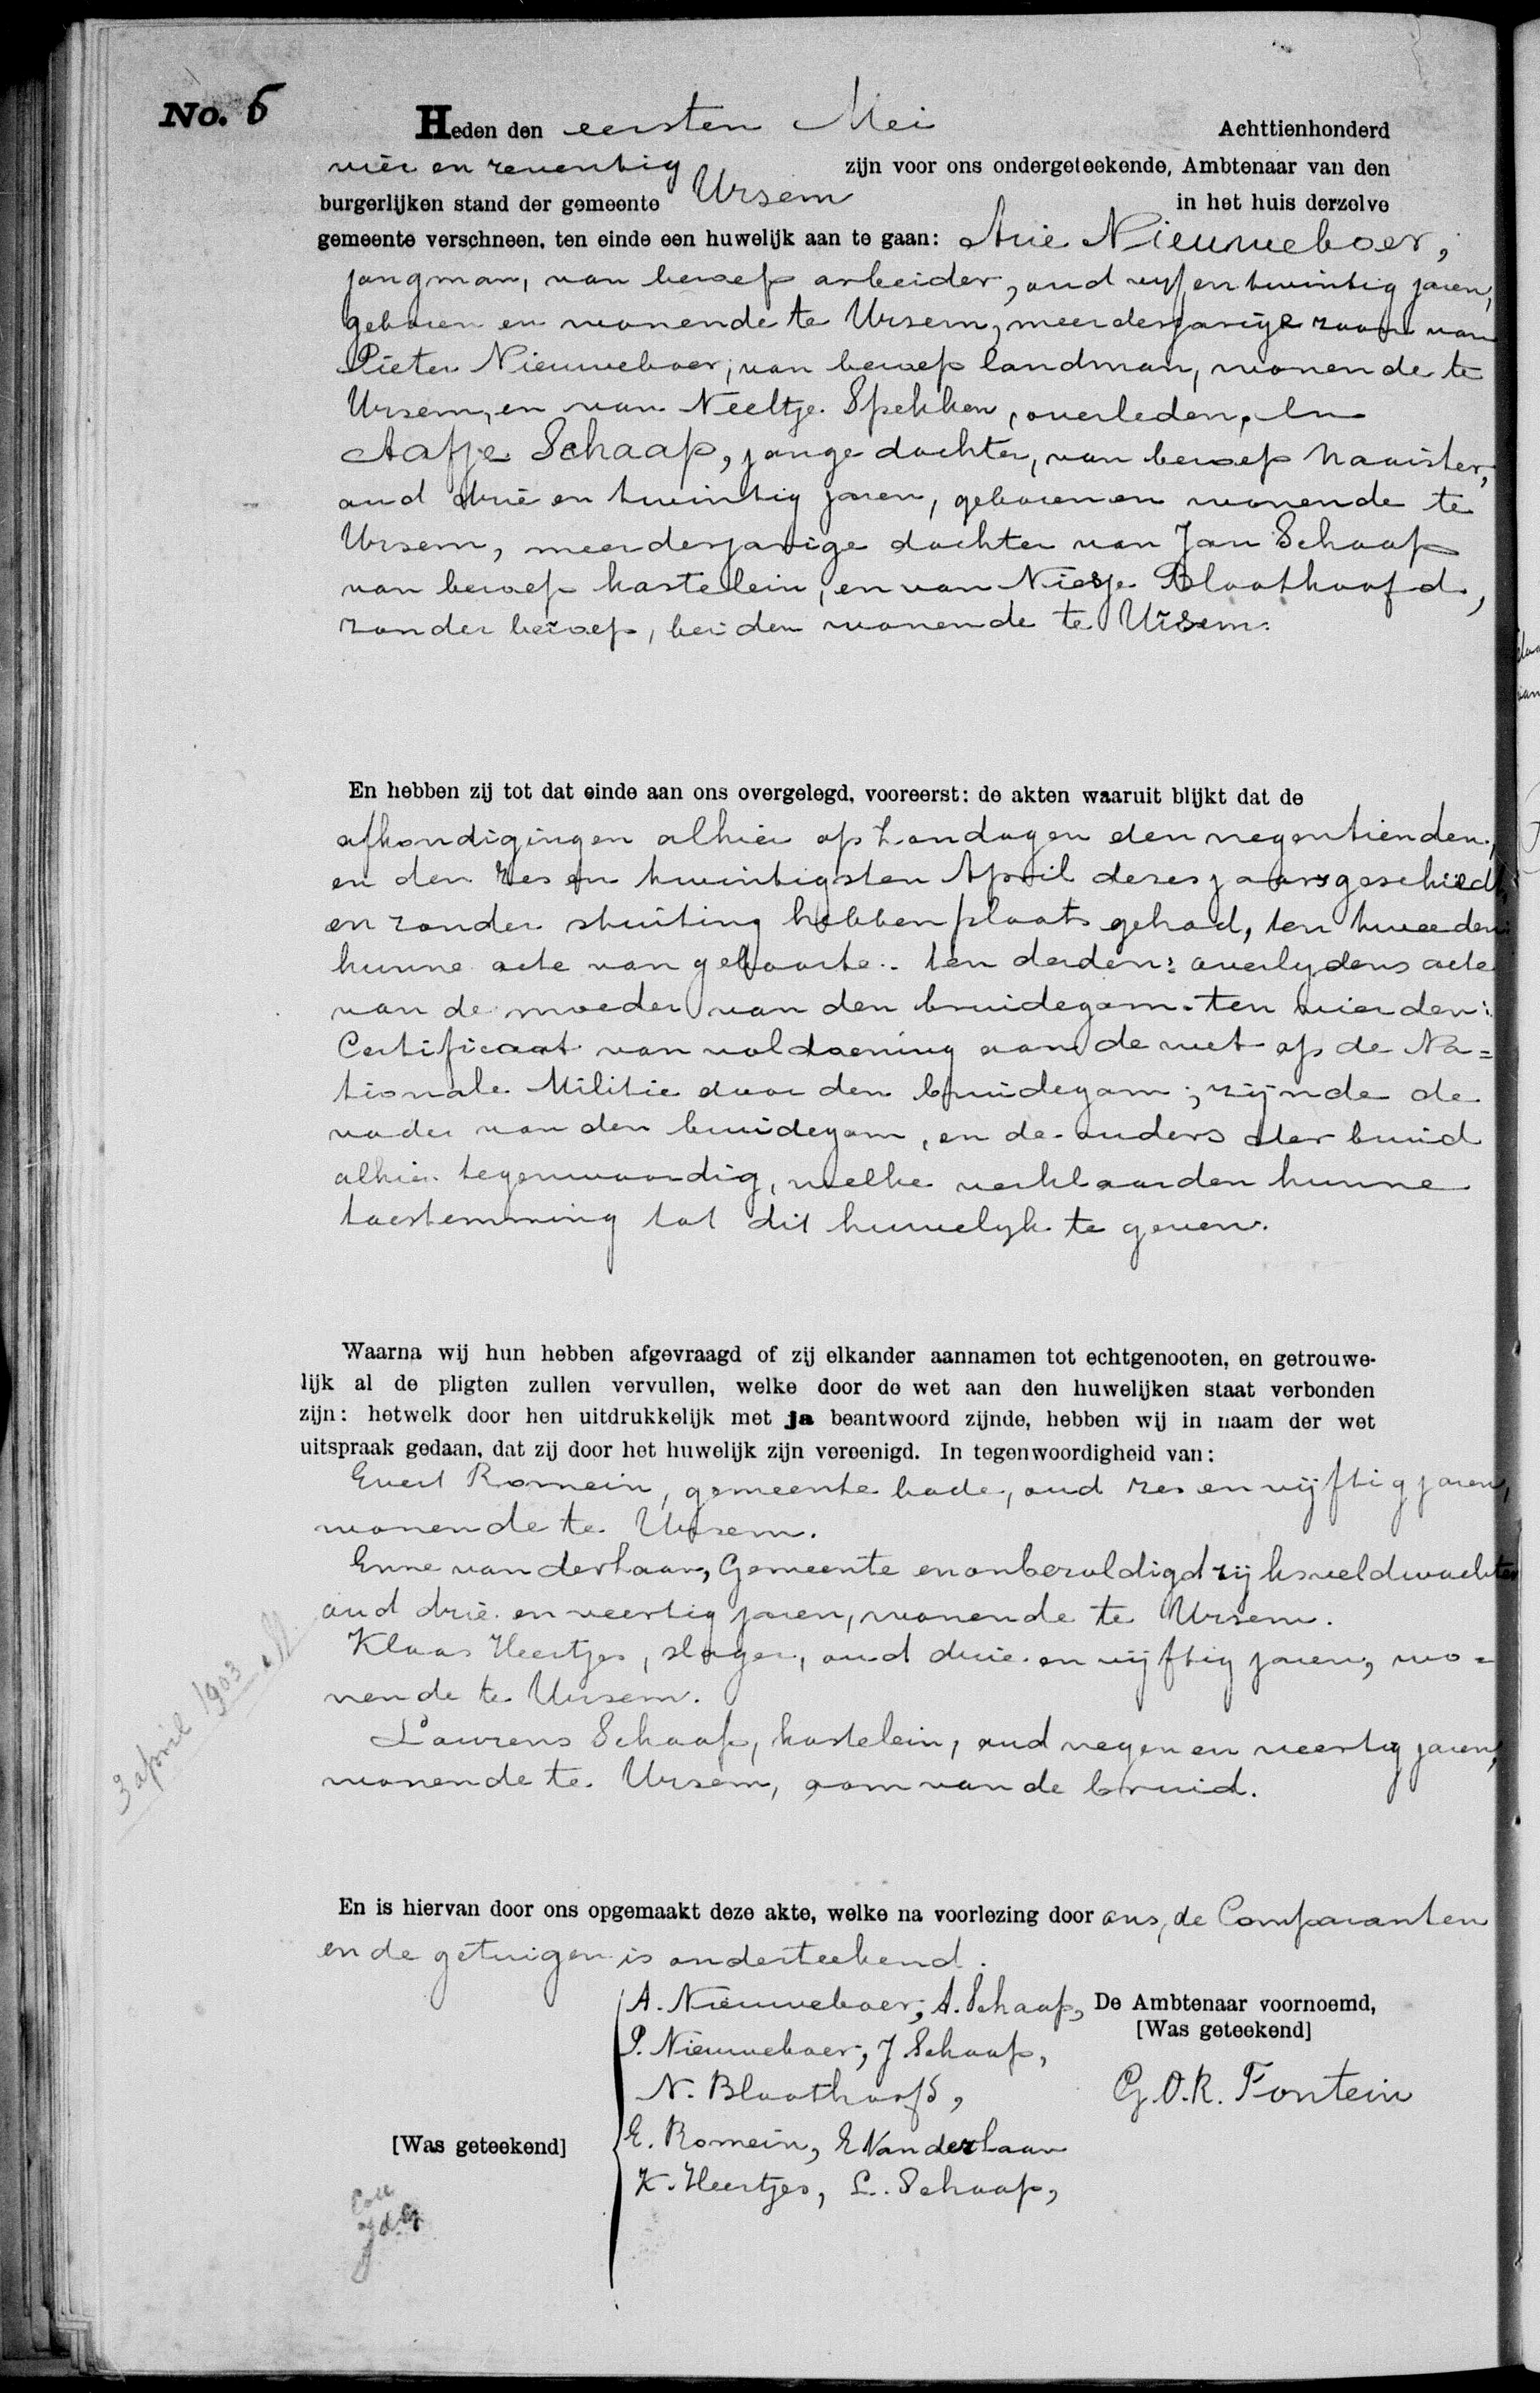 No. 6
Heden den eersten Mei Achttienhonderd
vier en zeventig zijn voor ons ondergeteekende, Ambtenaar van den
burgerlijken stand der gemeente Ursem in het huis derzelve
gemeente verschneen, ten einde een huwelijk aan te gaan: Arie Nieuweboer,
jongman, van beroep arbeider, oud vijf en twintig jaren,
geboren en wonende te Ursem, meerderjarige zoon van
Pieter Nieuweboer, van beroep landman, wonende te
Ursem, en van Neeltje Spekken, overleden, En
Aafje Schaap, jonge dochter, van beroep Naaister,
oud drie en twintig jaren, geboren en wonende te
Ursem, meerderjarige dochter van Jan Schaap
van beroep kastelein, en van Niesje Bloothoofd,
zonder beroep, beiden wonende te Ursem.
En hebben zij tot dat einde aan ons overgelegd, vooreerst: de akten waaruit blijkt dat de
afkondigingen alhier op Zondagen den negentienden,
en den zes en twintigsten April dezes jaars geschiedt,
en zonder stuiting hebben plaats gehad, ten tweeden:
hunne acte van geboorte.. ten derden: overlijdens acte
van de moeder van den bruidegom. ten vierden:
Certificaat van voldoening aan de wet op de Na=
tionale Militie door den bruidegom; zijnde de
vader van den bruidegom, en de ouders der bruid
alhier tegenwoordig, welke verklaarden hunne
toestemming tot dit huwelijk te geven.
Waarna wij hun hebben afgevraagd of zij elkander aannamen tot echtgenooten, en getrouwe-
lijk al de pligten zullen vervullen, welke door de wet aan den huwelijken staat verbonden
zijn: hetwelk door hen uitdrukkelijk met ja beantwoord zijnde, hebben wij in naam der wet
uitspraak gedaan, dat zij door het huwelijk zijn vereenigd. In tegenwoordigheid van:
Evert Romein, gemeente bode, oud zes en vijftig jaren,
wonende te Ursem.
Enne van der Laan, Gemeente en onbezoldigd rijksveldwachter
oud drie en veertig jaren, wonende te Ursem.
Klaas Heertjes, slager, oud drie en vijftig jaren, wo=
nende te Ursem.
Laurens Schaap, kastelein, oud negen en veertig jaren,
wonende te Ursem, oom van de bruid.
3 april 1903
En is hiervan door ons opgemaakt deze akte, welke na voorlezing door ons, de Comparanten
en de getuigen is onderteekend.
A. Nieuweboer, A. Schaap, De Ambtenaar voornoemd,
[Was geteekend]
P. Nieuweboer, J Schaap,
N. Bloothoofd, G. O. R. Fontein
[Was geteekend] E. Romein, E Van der Laan
K. Heertjes, L. Schaap,